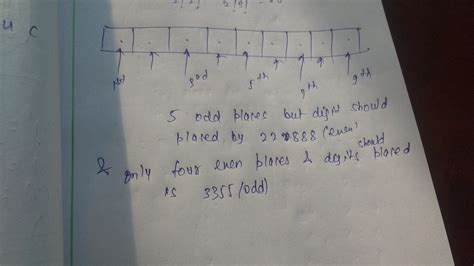 4 C
1st 3rd 5th 7th 9th
5 odd places but digit should
placed by 22888 (even)
& only four even places & digits should placed
is 3355 (odd)